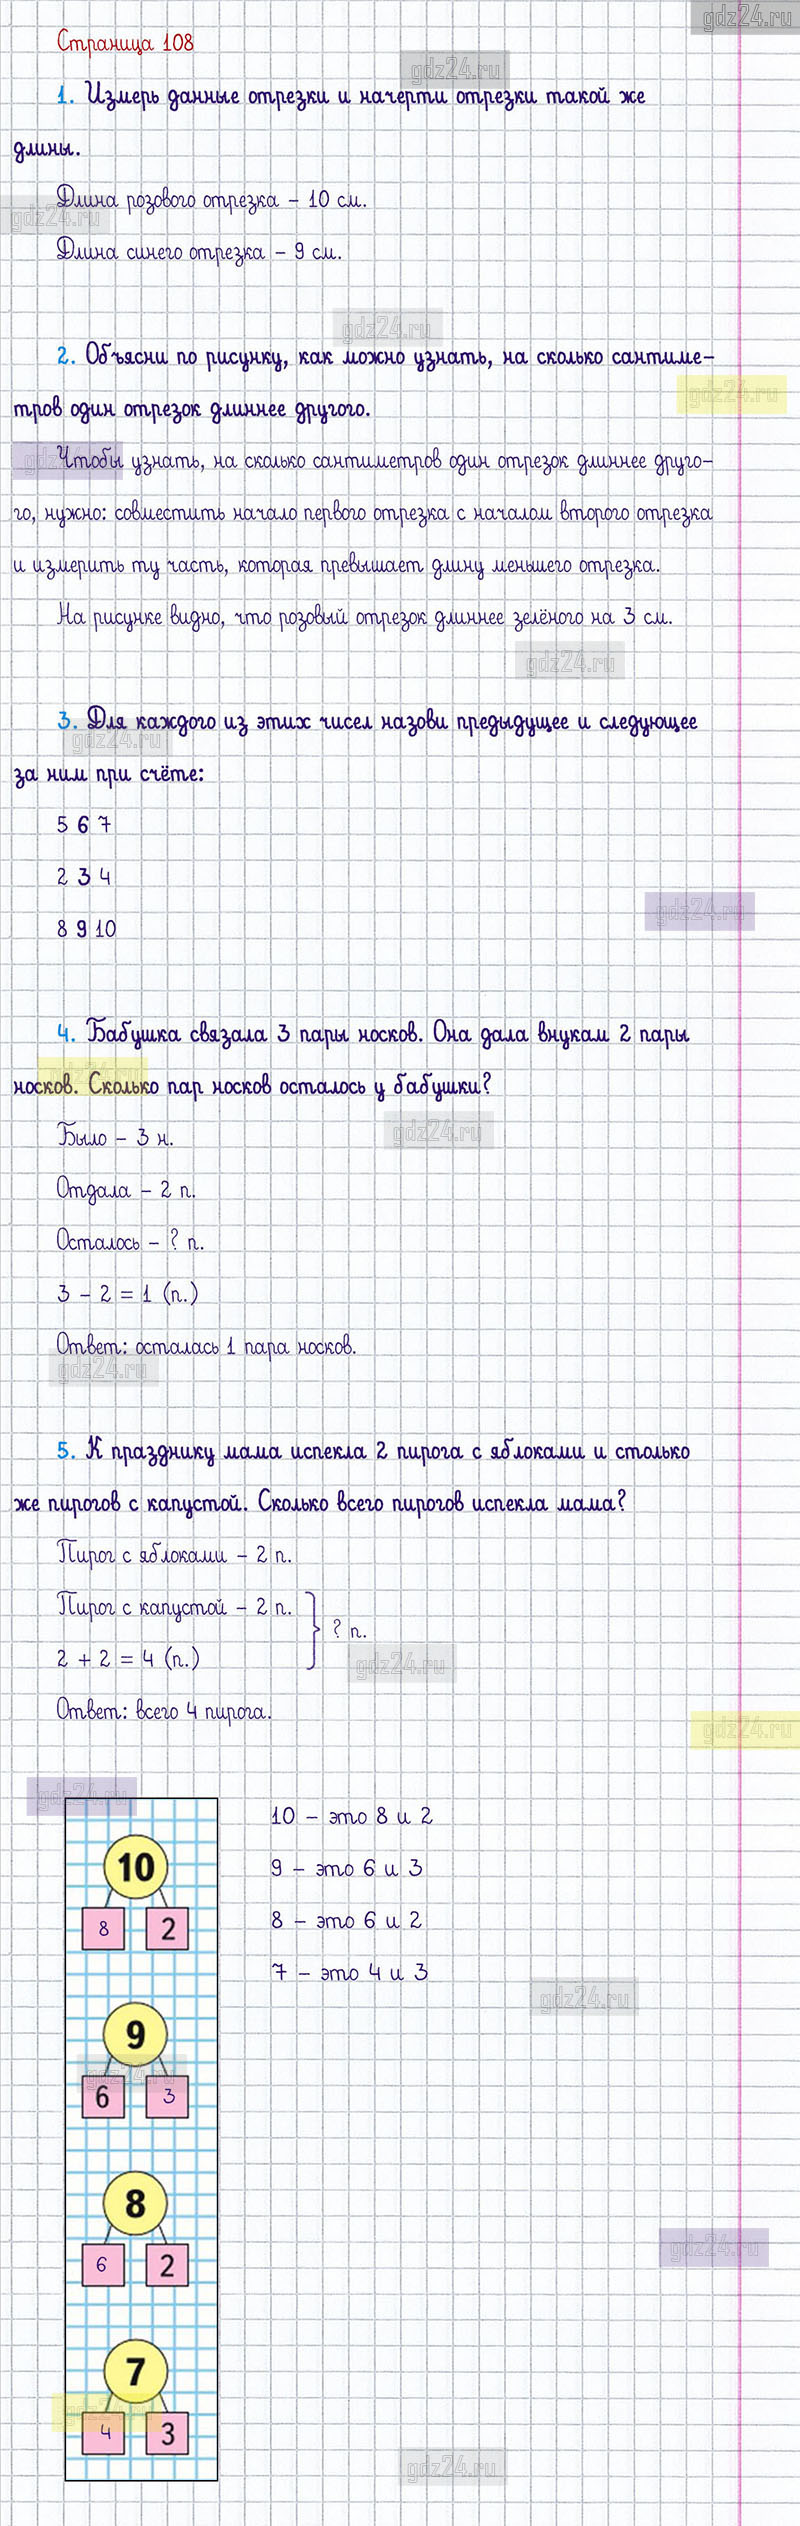 gdz24.ru
Страница 108
gdz24.ru
1. Измерь данные отрезки и начерти отрезки такой же
длины.
Длина розового отрезка – 10 см.
gdz24.ru
Длина синего отрезка – 9 см.
gdz24.ru
2. Объясни по рисунку, как можно узнать, на сколько сантиме–
gdz24.ru
тров один отрезок длиннее другого.
gdz24.ru
Чтобы узнать, на сколько сантиметров один отрезок длиннее друго–
го, нужно: совместить начало первого отрезка с началом второго отрезка
и измерить ту часть, которая превышает длину меньшего отрезка.
На рисунке видно, что розовый отрезок длиннее зелёного на 3 см.
gdz24.ru
3. Для каждого из этих чисел назови предыдущее и следующее
gdz24.ru
за ним при счёте:
5 6 7
2 3 4
gdz24.ru
8 9 10
4. Бабушка связала 3 пары носков. Она дала внукам 2 пары
gdz24.ru
носков. Сколько пар носков осталось у бабушки?
gdz24.ru
Было – 3 н.
Отдала – 2 п.
Осталось – ? п.
3 – 2 = 1 (п.)
Ответ: осталась 1 пара носков.
gdz24.ru
5. К празднику мама испекла 2 пирога с яблоками и столько
же пирогов с капустой. Сколько всего пирогов испекла мама?
Пирог с яблоками – 2 п.
Пирог с капустой – 2 п.
? п.
2 + 2 = 4 (п.)
gdz24.ru
Ответ: всего 4 пирога.
gdz24.ru
gdz24.ru
10 – это 8 и 2
9 – это 6 и 3
8 – это 6 и 2
7 – это 4 и 3
10
8 2
gdz24.ru
9
gdz24.ru
6 3
8
gdz24.ru
6 2
7
gdz24.ru
4 3
gdz24.ru